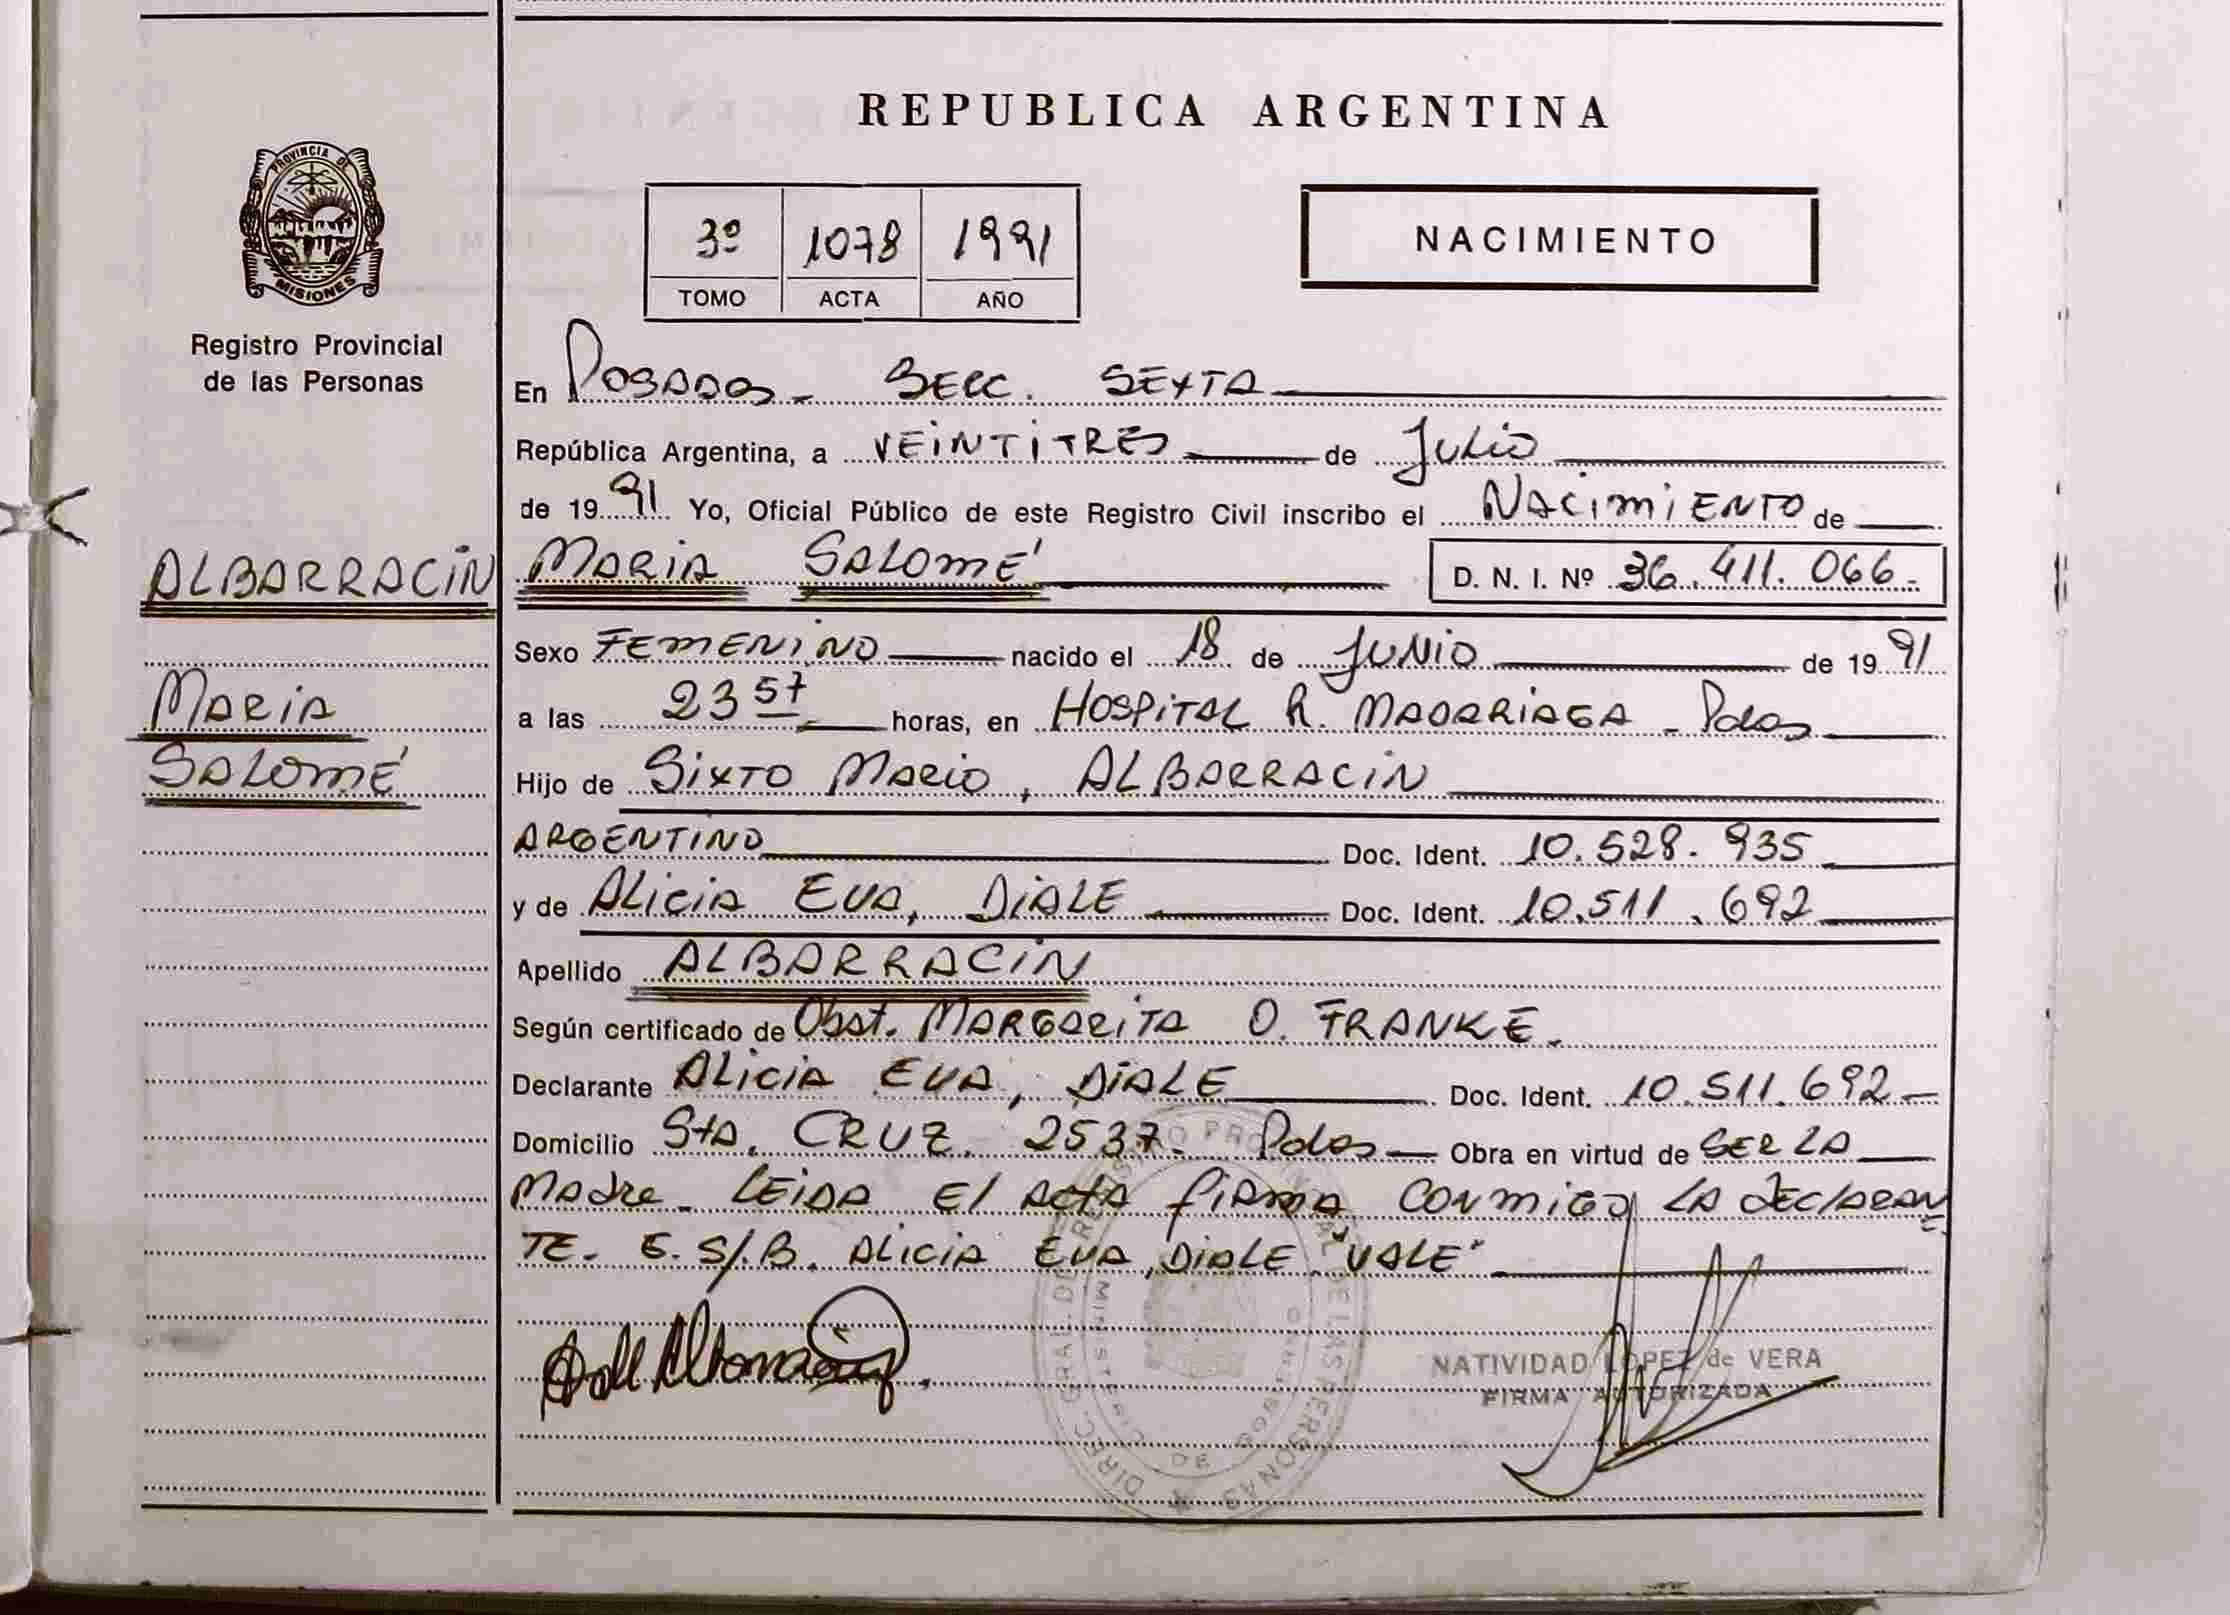 REPUBLICA ARGENTINA
PROVINCIA DE
MISIONES
Registro Provincial
de las Personas
3º 1078 1991
TOMO ACTA AÑO
NACIMIENTO
En POSADAS - SECC. SEXTA
República Argentina, a VEINTITRES de JULIO
de 1991 Yo, Oficial Público de este Registro Civil inscribo el NACIMIENTO de
ALBARRACIN MARIA SALOMÉ D. N. I. Nº 36.411.066-
Sexo FEMENINO nacido el 18 de JUNIO de 1991
MARIA
a las 23 57 horas, en HOSPITAL R. MADARIAGA - Pdas
SALOMÉ
Hijo de SIXTO MARIO, ALBARRACIN
ARGENTINO Doc. Ident. 10.528.935
y de ALICIA EVA, DIALE Doc. Ident. 10.511.692
Apellido ALBARRACIN
Según certificado de Obst. MARGARITA O. FRANKE.
Declarante ALICIA EVA, DIALE Doc. Ident. 10.511.692-
Domicilio Sta. CRUZ 2537- Pdas Obra en virtud de SER LA
Madre - LEIDA El ACTA firma CONMIGO LA DECLARAN
TE- E.S/.B. ALICIA EVA, DIALE "VALE"
NATIVIDAD LOPEZ de VERA
FIRMA AUTORIZADA
DIREC. GRAL. DEL REGISTRO PROVINCIAL DE LAS PERSONAS
MINISTERIO DE GOBIERNO